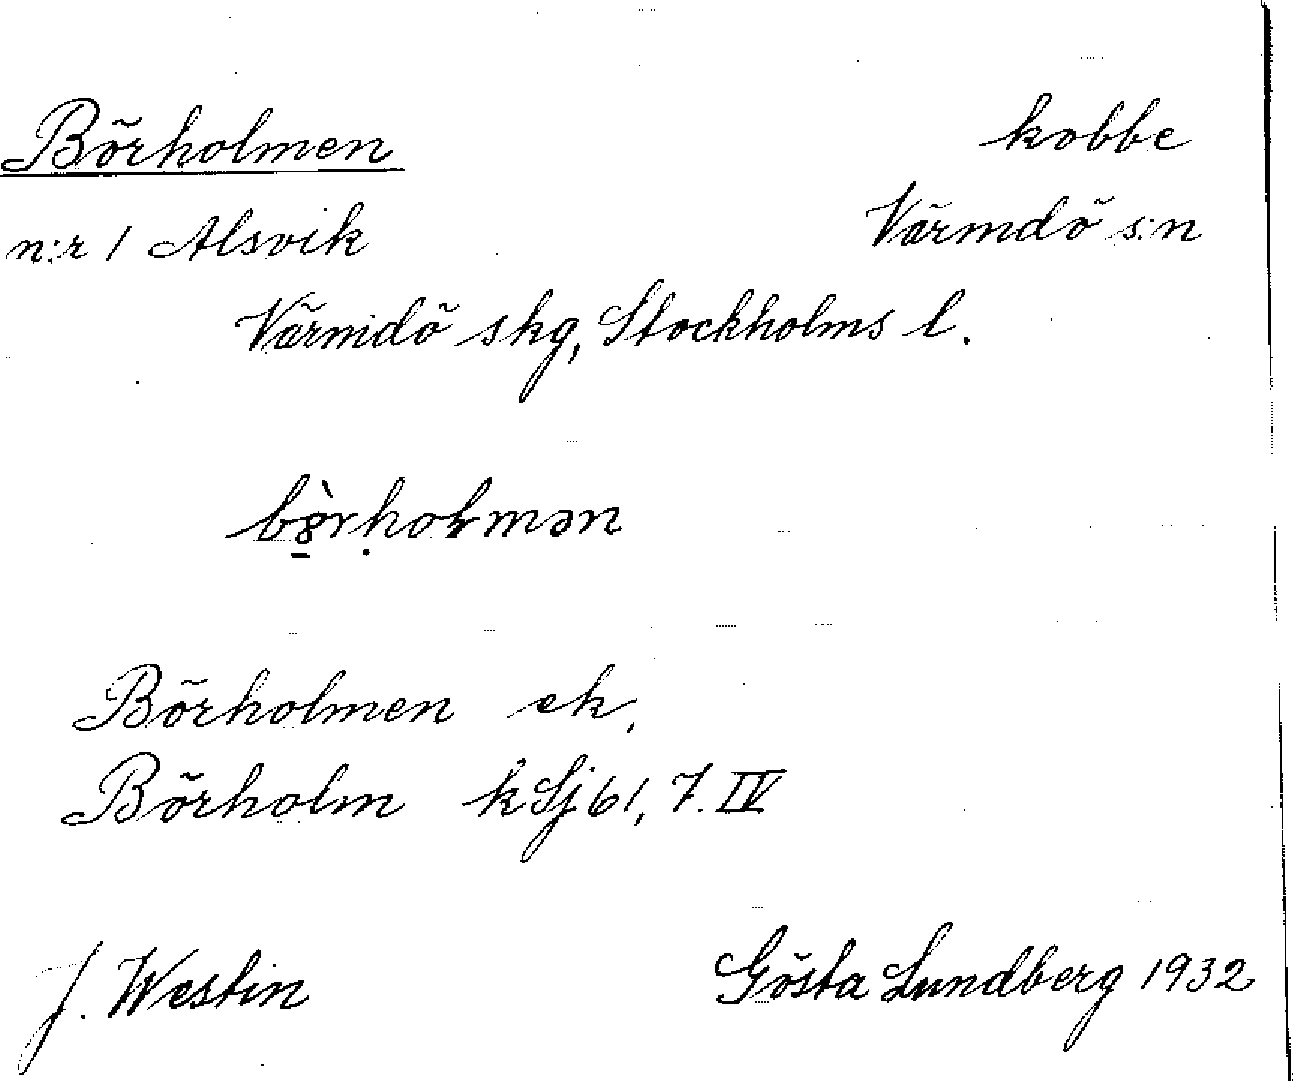 Börholmen kobbe
n:r 1 Alsvik Värmdö s:n
Värmdö skg, Stockholms l.
Börholmen ek.
Börholm k Sj 61, 7. IV
J. Westin Gösta Lundberg 1932